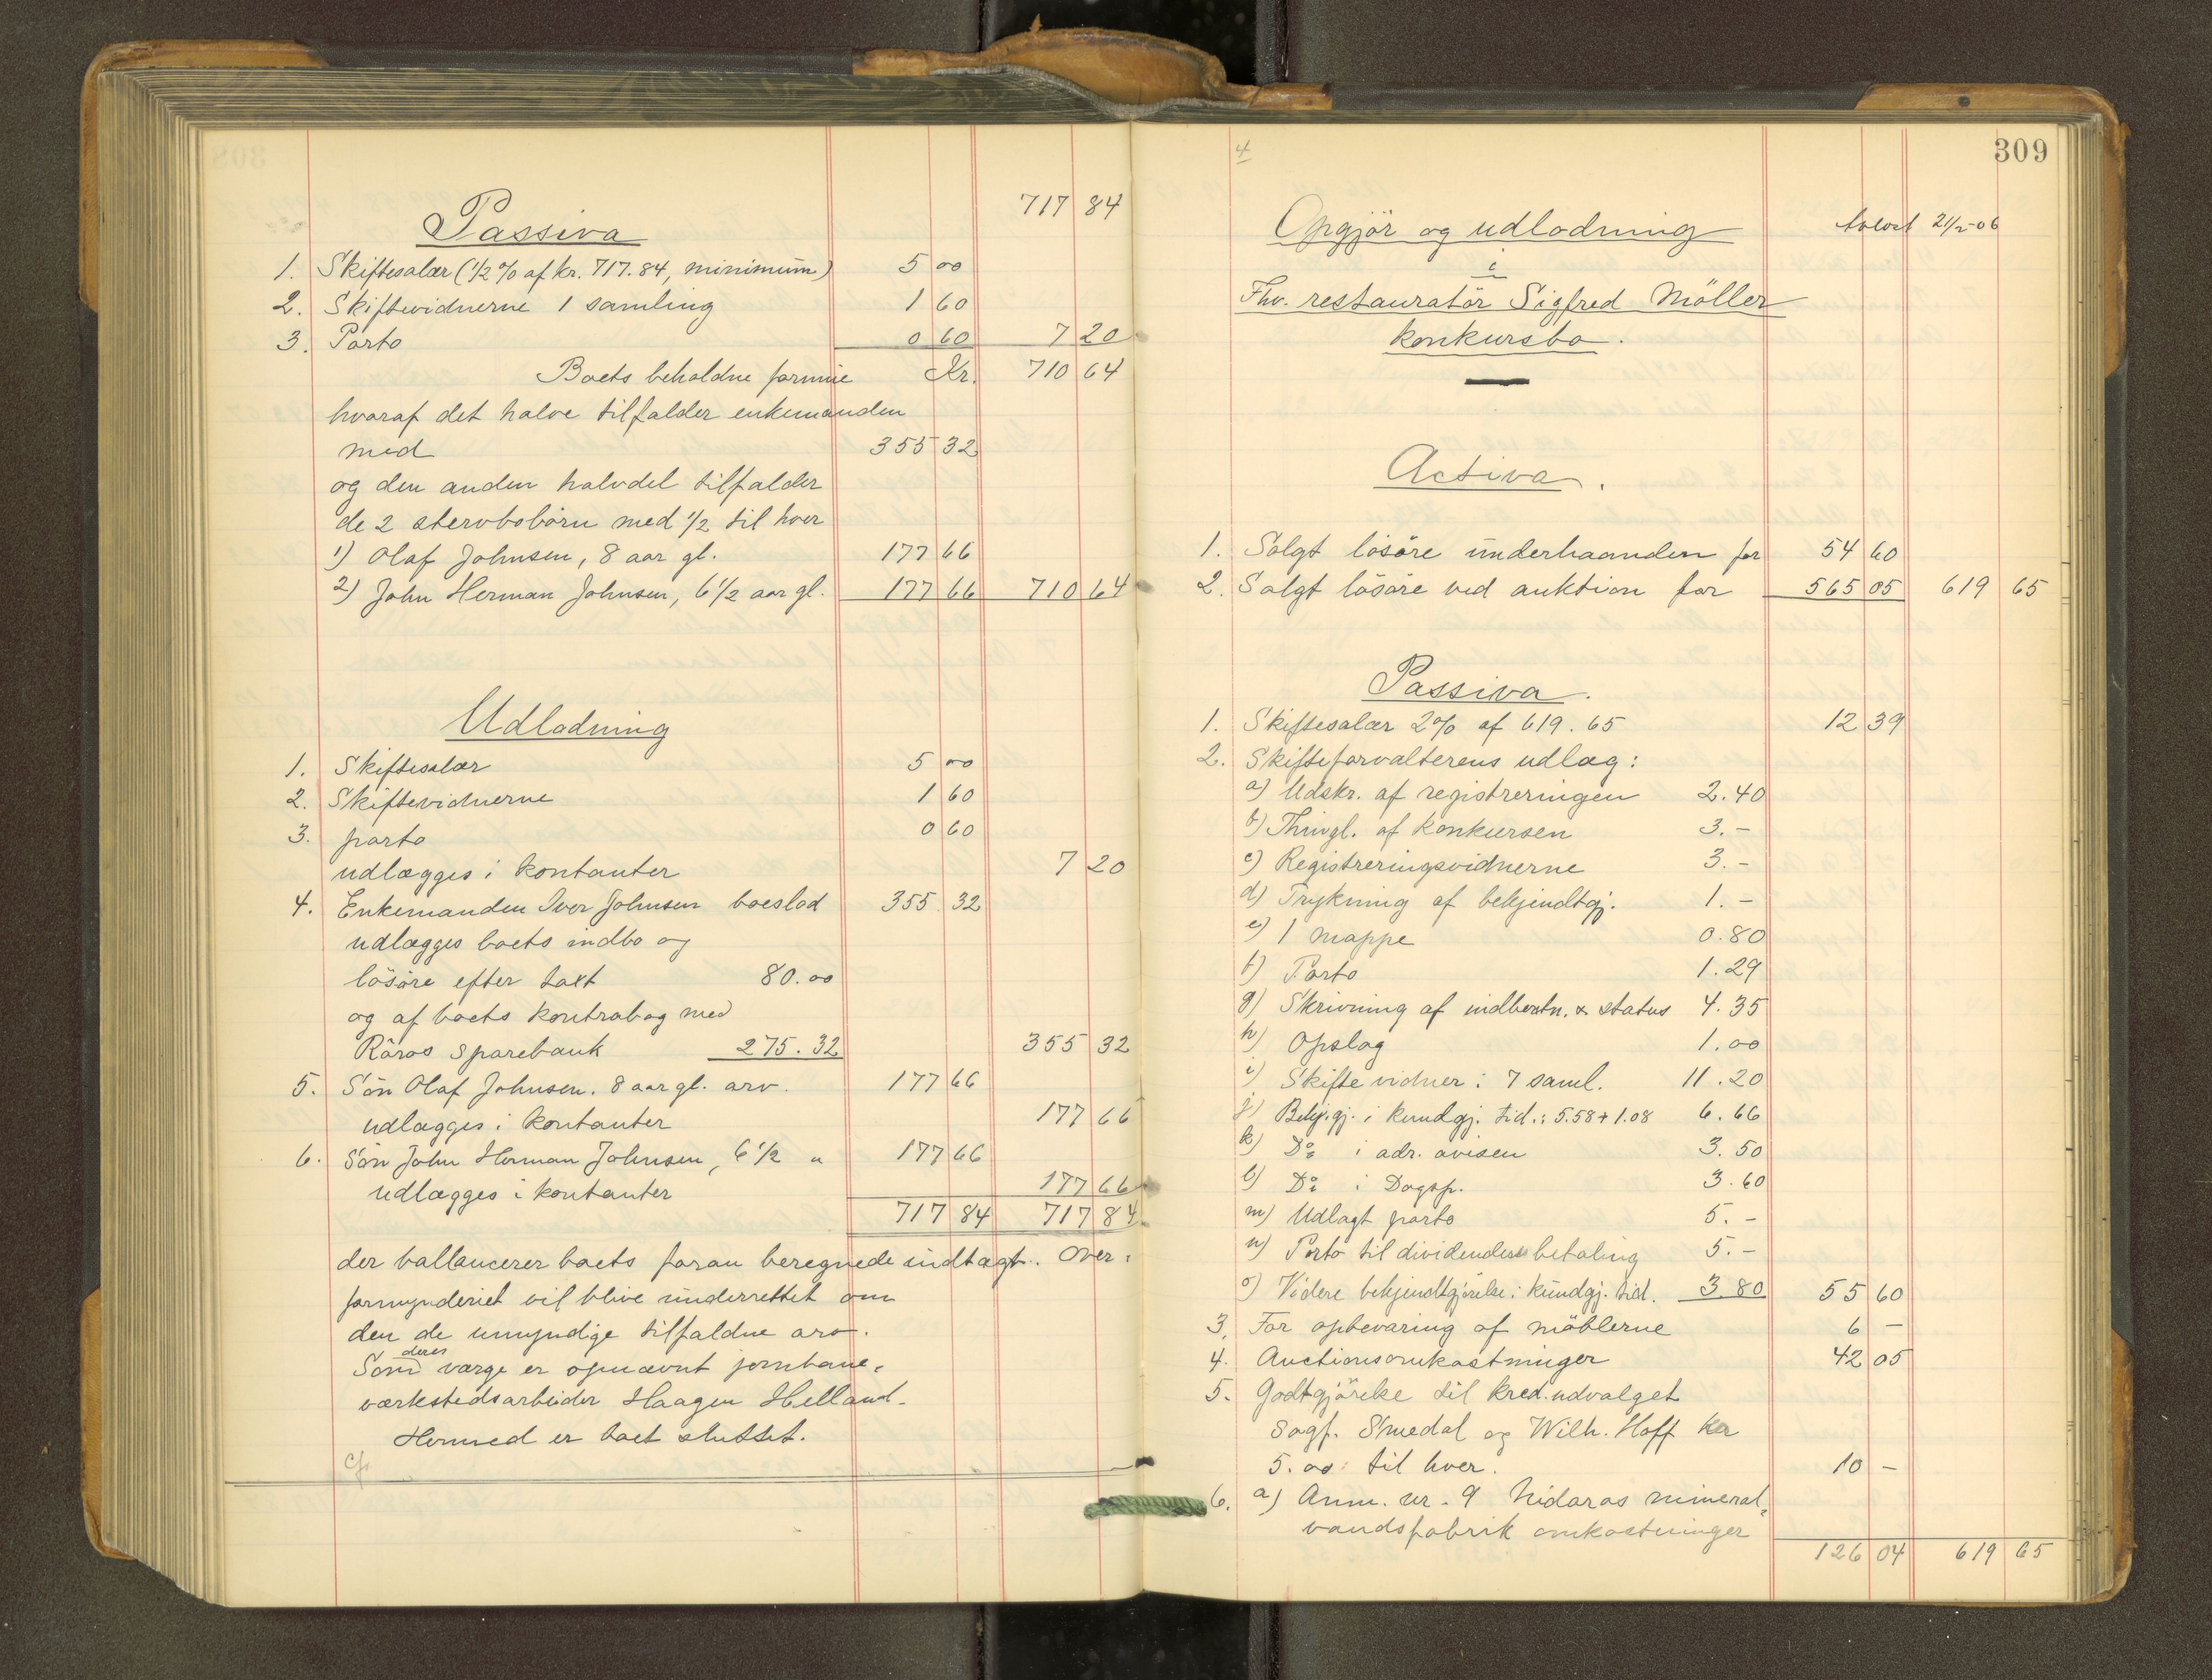 717 84
Passiva
1. Skiftesalær (1/2 % af kr. 717.84, minimum) 5 00
2. Skiftevidnerne 1 samling 1 60
3. Porto 0 60 7 20
Boets beholdne formue Kr. 710 64
hvoraf det halve tilfalder enkemanden
med 355 32
og den anden halvdel tilfalder
de 2 stervbobörn med 1/2 til hver
1) Olaf Johnsen, 8 aar gl. 177 66
2) John Herman Johnsen, 6 1/2 aar gl. 177 66 710 64
Udlodning
1. Skiftesalær 5 00
2. Skiftevidnerne 1 60
3. porto 0 60
udlægges i kontanter 7 20
4. Enkemanden Iver Johnsen boeslod 355 32
udlægges boets indbo og
lösöre efter taxt 80.00
og af boets kontrabog med
Röros sparebank 275.32 355 32
5. Sön Olaf Johnsen. 8 aar gl. arv. 177 66
udlægges i kontanter 177 66
6. Sön John Herman Johnsen, 6 1/2 " 177 66
udlægges i kontanter 177 66
717 84 717 84
der ballancerer boets foran beregnede indtægt. Over-
formynderiet vil blive underrettet om
den de umyndige tilfaldne arv.
Som deres værge er opnævnt jernbane-
værkstedsarbeider Haagen Helland.
Hermed er boet sluttet.
309
4
Opgjör og udlodning 21/2-06
i
Fhv. restauratör Sigfred Möller
konkursbo.
Activa.
1. Solgt lösöre underhaanden for 54 60
2. Solgt lösöre ved auktion for 565 05 619 65
Passiva.
1. Skiftesalær 2% af 619.65 12 39
2. Skifteforvalterens udlæg:
a) Udskr. af registreringen 2.40
b) Thingl. af konkursen 3.-
c) Registreringsvidnerne 3.-
d) Trykning af bekjendtgj. 1.-
e) 1 mappe 0.80
f) Porto 1.29
g) Skrivning af indberetn. & status 4.35
h) Opslag 1.00
i) Skifte vidner: 7 saml. 11.20
j) Bekj.gj. i kundgj. tid.: 5.58+1.08 6.66
k) Do i adr. avisen 3.50
l) Do i Dagsp. 3.60
m) Udlagt porto 5.-
n) Porto til dividendens betaling 5.-
o) Videre bekjendtgjörelse i kundgj. tid. 3.80 55 60
3. For opbevaring af möblerne 6 -
4. Auctionsomkostninger 42 05
5. Godtgjörelse til kred.udvalget
sagf. Smedal og Wilh. Hoff kr
5.00 til hver. 10 -
6. a) Anm. nr. 9 Nidaros mineral-
vandsfabrik omkostninger
126 04 619 65